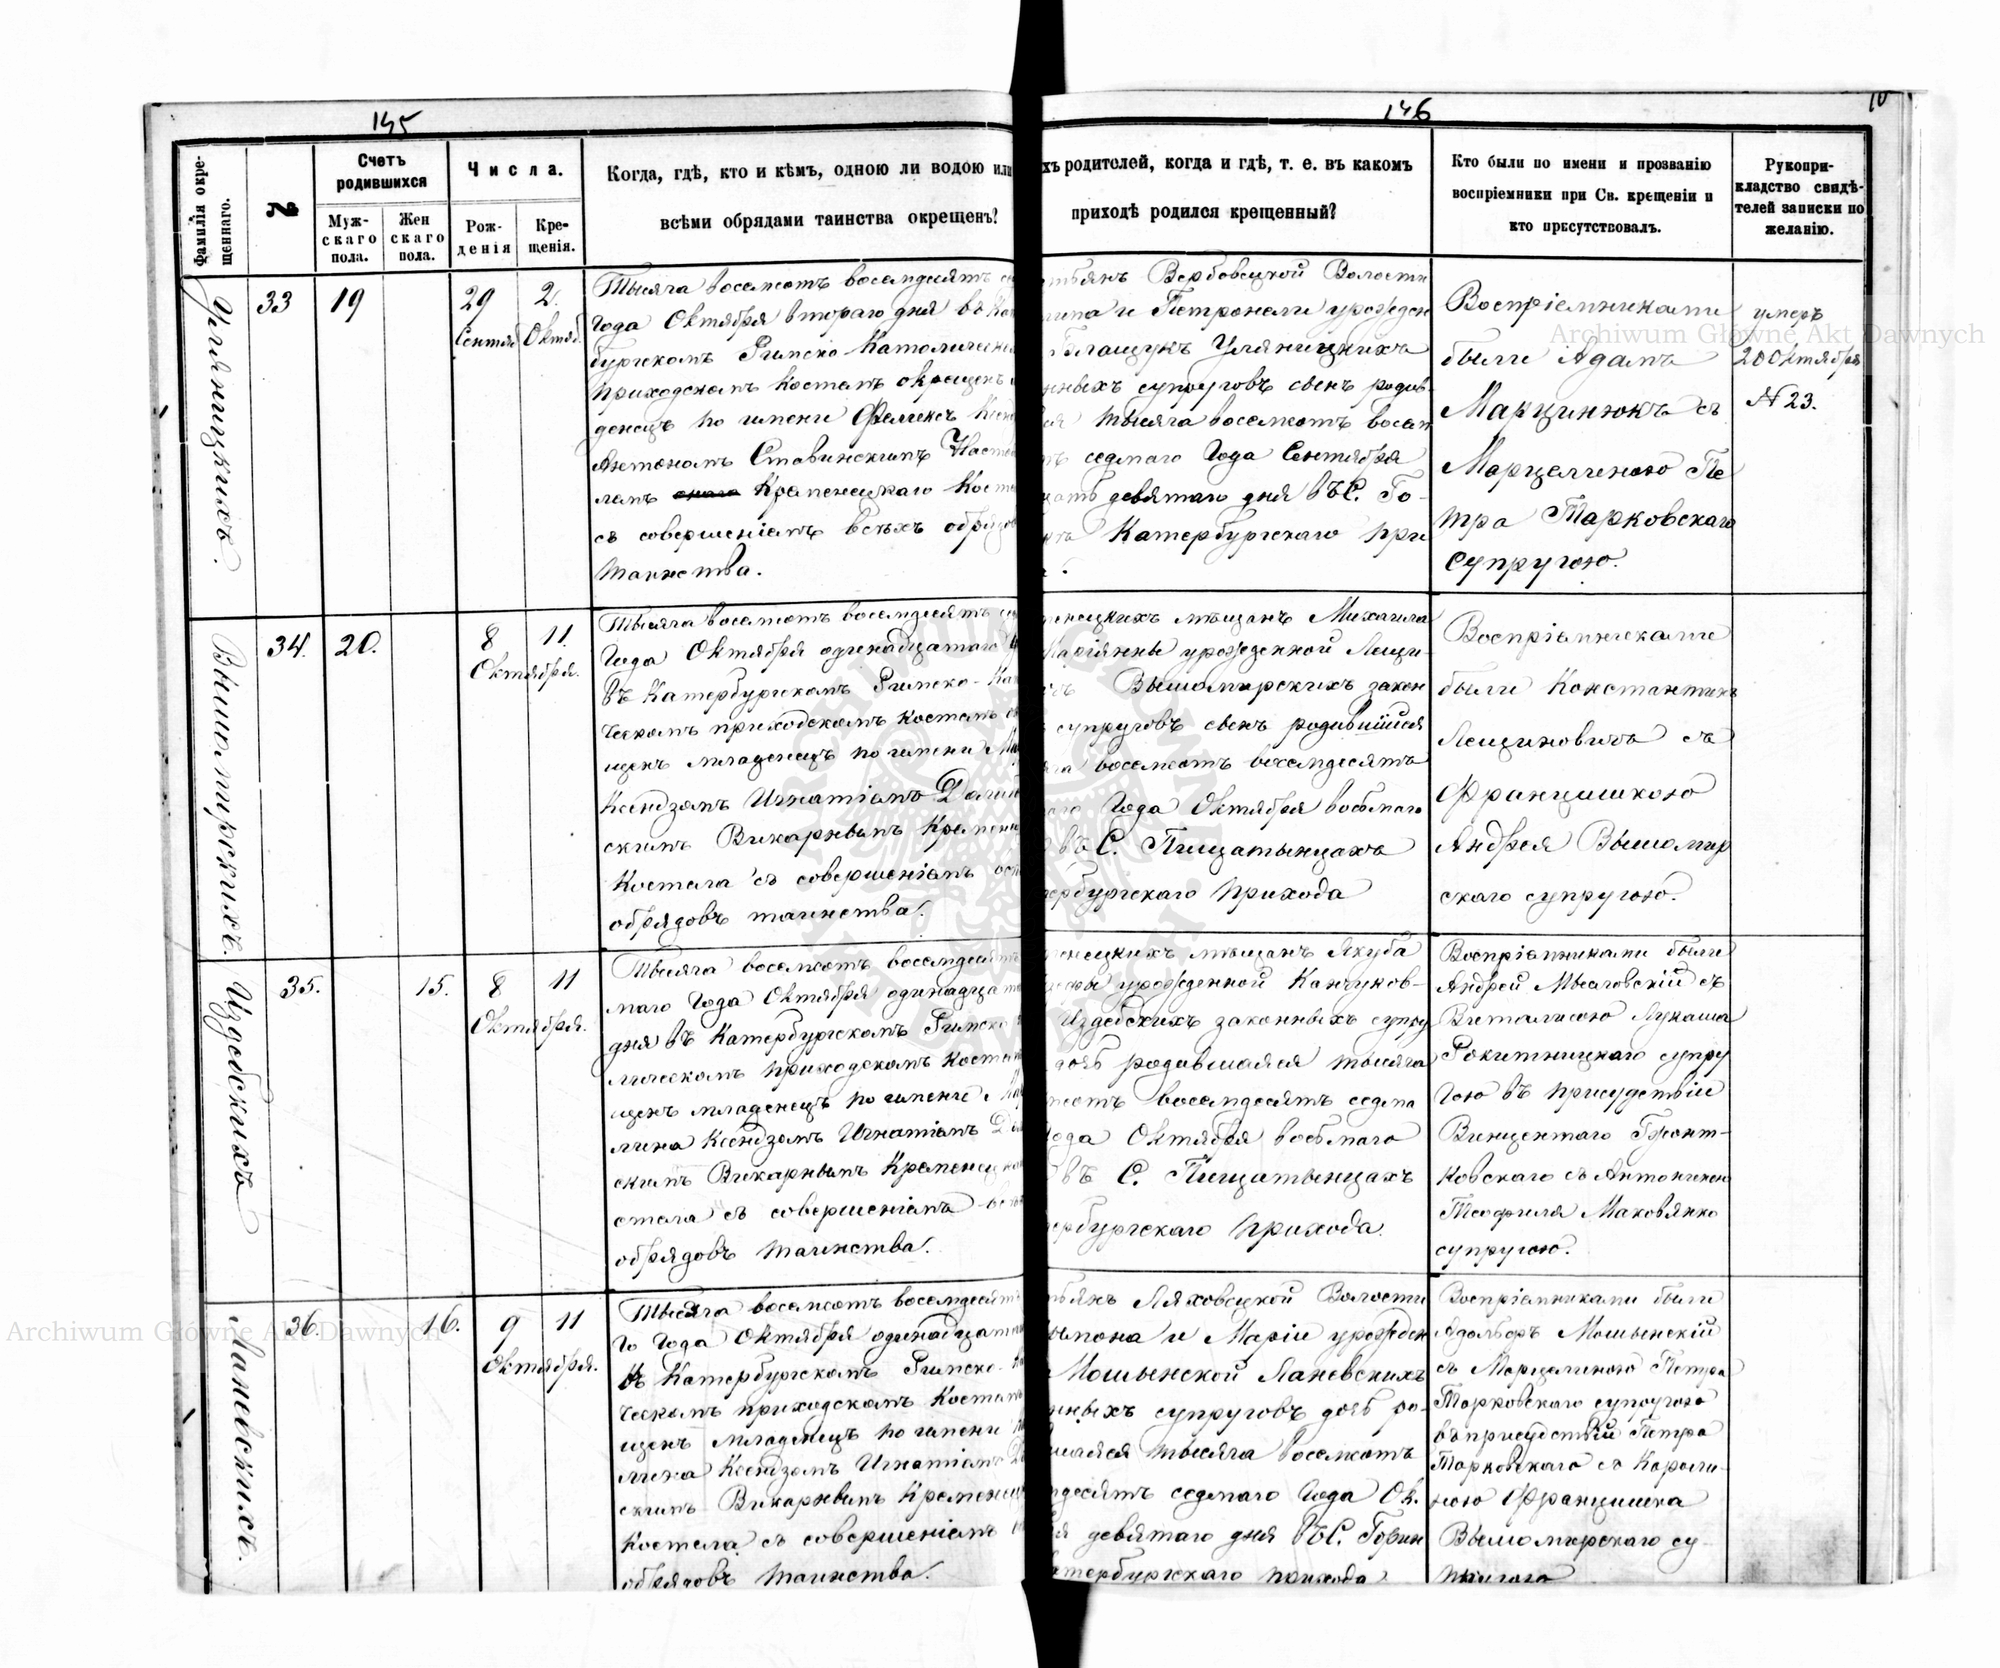 145
146
10
Фамилія окре-
щеннаго.
№
Счетъ
родившихся
Муж-
скаго
пола.
Жен
скаго
пола.
Числа.
Рож-
денія
Кре-
щенія.
Когда, гдѣ, кто и кѣмъ, одною ли водою или
всѣми обрядами таинства окрещенъ?
хъ родителей, когда и гдѣ, т. е. въ какомъ
приходѣ родился крещенный?
Кто были по имени и прозванію
воспріемники при Св. крещеніи и
кто присутствовалъ.
Рукопри-
кладство свидѣ-
телей записки по
желанію.
Уляницкихъ.
33
19
29
Сентяб
2.
Октяб.
Тысяча восемсотъ восемдесятъ се
Года Октября втораго дня въ Кат
бургскомъ Римско Католическо
приходскомъ костелѣ окрещенъ
денецъ по имени Феликсъ Ксен
Антономъ Ставинскимъ Насто
лемъ Кременецкаго Косте
съ совершеніемъ всѣхъ обрядов
таинства.
стьянъ Вербовецкой Волости
липа и Петронели урожден
Галащукъ Уляницкихъ
нныхъ супруговъ сынъ родив-
ся тысяча восемсотъ восем
тъ седмаго Года Сентября
цать девятаго дня въ С. Го-
Катербургскаго при
а.
Воспріемниками
были Адамъ
Марцинюкъ съ
Марцелиною Пе
тра Тарковскаго
супругою.
умеръ
20 Октября
N 23.
Вышомирскихъ.
34.
20.
8
11
Октября.
Тысяча восемсотъ восемдесятъ се
Года Октября одинадцатаго д
въ Катербургскомъ Римско-Кат
ческомъ приходскомъ костелѣ ок
щенъ младенецъ по имени Ми
Ксендзомъ Игнатіемъ Долин
скимъ Викарнымъ Кременец
Костела съ совершеніемъ всѣ
обрядовъ таинства.
менецкихъ мѣщанъ Михаила
Маріянны урожденной Лещи-
чъ Вышомирскихъ закон
супруговъ сынъ родившійся
яча восемсотъ восемдесятъ
аго Года Октября восьмаго
въ С. Пищатынцахъ
тербургскаго прихода
Воспріемниками
были Константинъ
Лещиновичъ съ
Францишкою
Андрея Вышомир
скаго супругою.
Издебскихъ
35.
15.
8
11
Октября.
Тысяча восемсотъ восемдесятъ
маго Года Октября одинадцата
дня въ Катербургскомъ Римско
лическомъ приходскомъ костел
щенъ младенецъ по имени Ка
лина Ксендзомъ Игнатіемъ Дол
скимъ Викарнымъ Кременецка
стела съ совершеніемъ всѣ
обрядовъ таинства.
менецкихъ мѣщанъ Якуба
урожденной Канчуков-
Издебскихъ законныхъ супру
дочь родившаяся тысяча
мсотъ восемдесятъ седма
Года Октября восьмаго
въ С. Пищатынцахъ
тербургскаго прихода.
Воспріемниками были
Андрей Мысловскій съ
Виталисою Лукаша
Рокитницкаго супру
гою въ присудствіи
Винцентаго Бронт-
ковскаго съ Антониною
Теофиля Маковянко
супругою.
Ланевскихъ.
36.
16.
9
11
Октября.
Тысяча восемсотъ восемдесятъ
го Года Октября одинадцата
въ Катербургскомъ Римско-Ка
ческомъ приходскомъ костелѣ
щенъ младенецъ по имени
лина Ксендзомъ Игнатіемъ До
скимъ Викарнымъ Кременец
Костела съ совершеніемъ
обрядовъ таинства.
тьянъ Ляховецкой Волости
мпона и Маріи урожден
Мошынской Ланевскихъ
нныхъ супруговъ дочь ро-
вшаяся тысяча восемсотъ
мдесятъ седмаго Года Ок.
ря девятаго дня въ С. Горын
атербургскаго прихода
Воспріемниками были
Адольфъ Мошынскій
съ Марцелиною Петра
Тарковскаго супругою
въ присудствіи Петра
Тарковскаго съ Кароли-
ною Францишка
Вышомирскаго су-
пругою
Archiwum Główne Akt Dawnych
Archiwum Główne Akt Dawnych